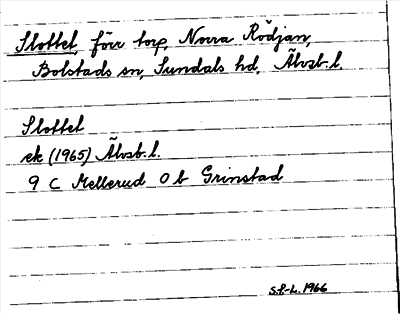 Slottet, förr torp, Norra Rödjan,
Bolstads sn, Sundals hd, Älvsb. l.
Slottet
ek (1965) Älvsb. l.
9 C Mellerud 0 b Grinstad
S.P-L. 1966